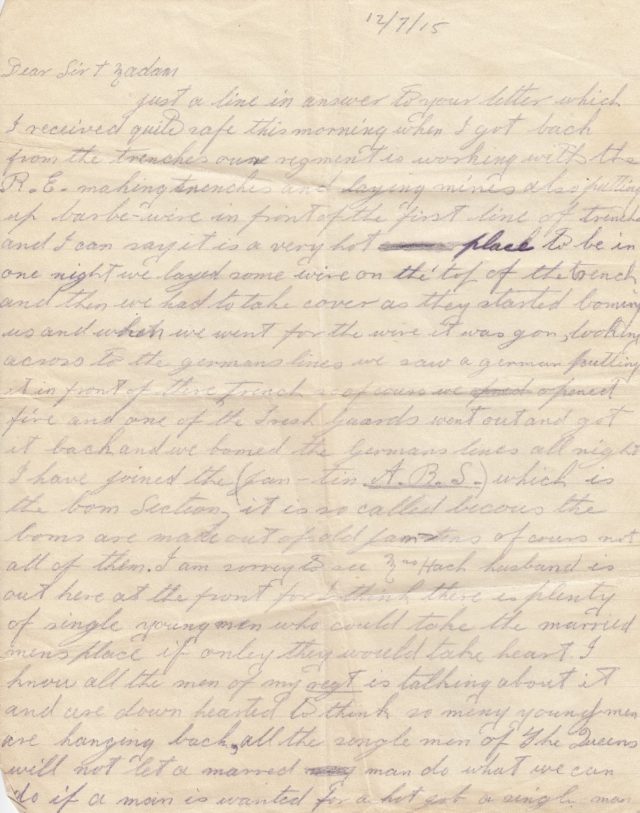 12/7/15
Dear Sir & Madam
just a line in answer to your letter which
I received quite safe this morning when I got back
from the trenches our regment is working with the
R.E. making trenches and laying mines also putting
up barbe-wire in front of the first line of trench
and I can say it is a very hot place to be in
one night we layed some wire on the top of the trench
and then we had to take cover as they started boming
us and when we went for the wire it was gon, looking
across to the germans lines we saw a german putting
it in front of there trench so of cours we opened
fire and one of the Irish Gaards went out and got
it back and we bomed the Germans lines all night
I have joined the (jam-tin A.R.S.) which is
the bom Section, it is so called becous the
boms are made out of old jam-tins of cours not
all of them. I am sorrey to see Mrs Hach husband is
out here at the front for I think there is plenty
of single young men who could take the married
mens place if onley they would take heart. I
know all the men of my regt is talking about it
and are down hearted to think so meny young men
are hanging back, all the single men of The Queens
will not let a marred man do what we can
do if a man is wanted for a hot job a single man